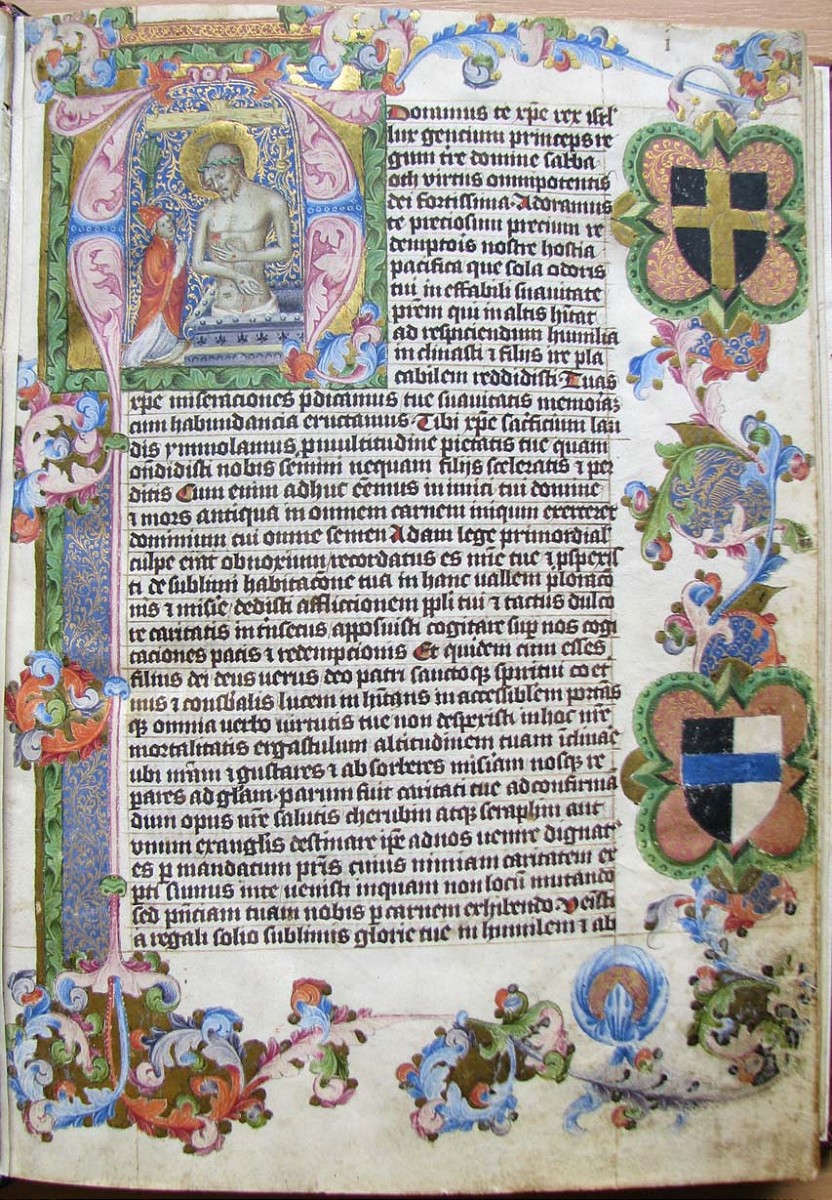 i
Doramus te xpe rex isrl
lux gentium princeps re
gum tre domine saba
oth virtus omnipotentis
dei fortissima. Adoramus
te preciosum precium re
demptois nostre hostia
pacifica que sola odoris
tui ineffabili suauitate
prem qui in altis hitat
ad respiciendum humilia
inclinasti ⁊ filijs ire pla
cabilem reddidisti. Tuas
xpe miseraciones pdicamus tue suauitatis memoriaz
cum habundancia eructamus. Tibi xpe sacficium lau
dis ymmolamus, p multitudine pietatis tue quam
ondidisti nobis semini nequam filijs sceleratis ⁊ per
ditis Cum enim adhuc eemus inimici tui domine
⁊ mors antiqua in omnem carnem iniqum exerceret
dominium cui omne semen Adam lege primordial
culpe erat obnoxium, recordatus es mie tue ⁊ pspexis
ti de sublimi habitacone tua in hanc uallem ploraco
nis ⁊ misie, dedisti affliccionem ppli tui ⁊ tactus dulco
re caritatis intrinsecus, apposuisti cogitare sup nos cogi
taciones pacis ⁊ redempcionis Et quidem cum esses
filius dei deus uerus deo patri sanctoqz spiritui coet
nus ⁊ consbalis lucem inhitans inaccessiblem portas
qz omnia uerbo uirtutis tue non despexisti in hoc nre
mortalitatis ergastulum altitudinem tuam iclinae
ubi nram ⁊ gustares ⁊ absorberes misiam nosqz re
pares ad glam. parum fuit caritati tue ad confirma
dum opus nre salutis cherubin atqz seraphin aut
vnum ex anglis destinare ipe ad nos uenire dignat
es p mandatum pris cuius nimiam caritatem ex
pti sumus in te ueni­sti inquam non locum mutando
sed pnciam tuam nobis p carnem exhibendo. Veisti
a regali solio sublimis glorie tue in humilem ⁊ ab